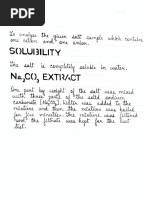 To analyse the given salt sample which contains
one cation and one anion.
SOLUBILITY
The salt is completely soluble in water.
Na₂CO₃ EXTRACT
One part by weight of the salt was mixed
with three parts of the solid sodium
carbonate (Na₂CO₃). Water was added to the
mixture and then the mixture was boiled
for five minutes. The mixture was filtered
and the filtrate was kept for the
test.